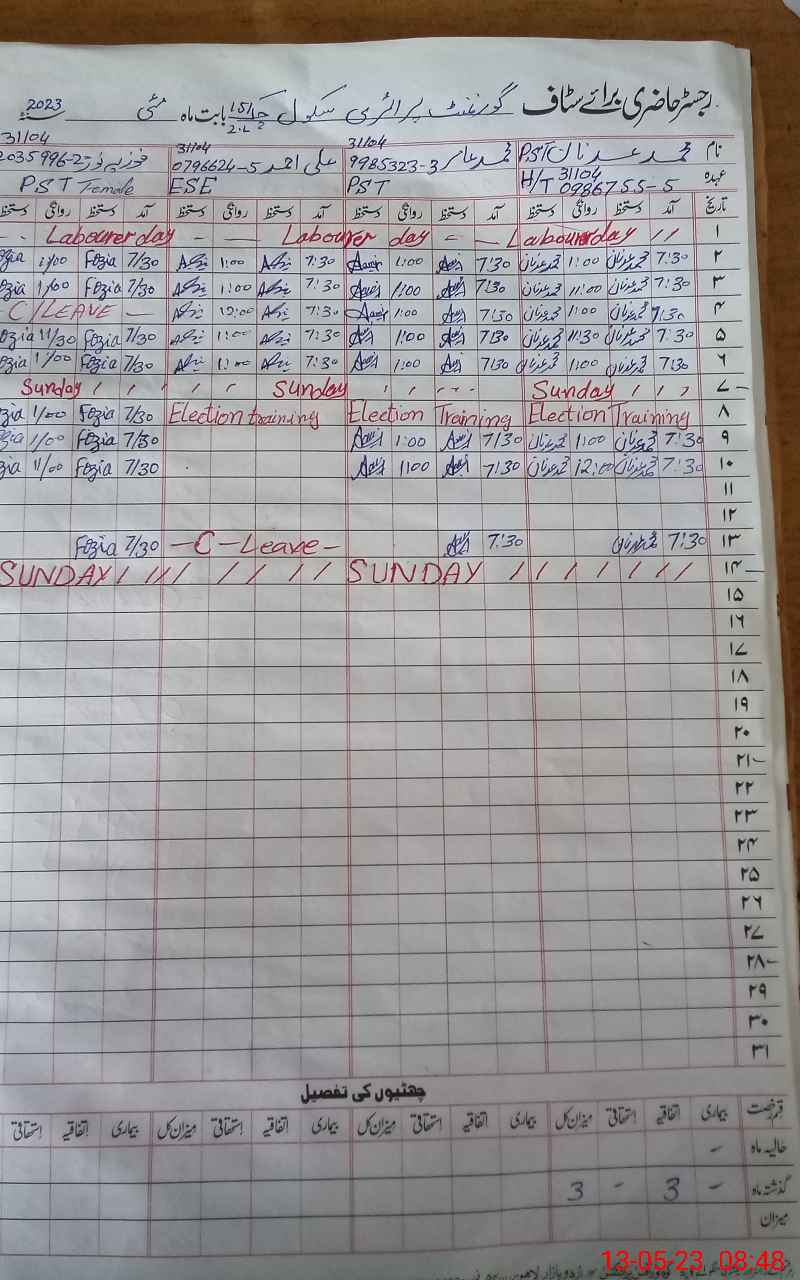 رجسٹر حاضری برائے سٹاف گورنمنٹ پرائمری سکول چک 151/2-L بابت ماہ مئی سنہ 2023
نام محمد عدنان PST محمد عامر 31104 9985323-3 علی احمد 31104 0796624-5 فوزیہ نور 31104 2035996-2
عہدہ H/T 31104 0986755-5 PST ESE PST Female
تاریخ آمد دستخط روانگی دستخط آمد دستخط روانگی دستخط آمد دستخط روانگی دستخط آمد دستخط روانگی دستخط
۱ Labourer day Labourer day Labourer day
۲ 7:30 محمد عدنان 1:00 محمد عدنان 7:30 Aamir 1:00 Aamir 7:30 1:00 7/30 Fozia 1/00 Fozia
۳ 7:30 محمد عدنان 11:00 محمد عدنان 7:30 Aamir 1:00 Aamir 7:30 1:00 7/30 Fozia 1/00 Fozia
۴ 7:30 محمد عدنان 1:00 محمد عدنان 7:30 Aamir 1:00 Aamir 7:30 12:00 C/LEAVE
۵ 7:30 محمد عدنان 11:30 محمد عدنان 7:30 Aamir 1:00 Aamir 7:30 7/30 Fozia 11/30 Fozia
۶ 7:30 محمد عدنان 1:00 محمد عدنان 7:30 Aamir 1:00 Aamir 7:30 7/30 Fozia 1/00 Fozia
۷ Sunday Sunday Sunday
۸ Election Training Election Training Election training 7/30 Fozia 1/00 Fozia
۹ 7:30 محمد عدنان 1:00 محمد عدنان 7/30 Aamir 1:00 Aamir 7/30 Fozia 1/00 Fozia
۱۰ 7:30 محمد عدنان 12:00 محمد عدنان 7/30 Aamir 1:00 Aamir 7/30 Fozia 11/00 Fozia
۱۱
۱۲
۱۳ 7:30 محمد عدنان 7:30 Aamir C-Leave 7/30 Fozia
۱۴ SUNDAY SUNDAY
۱۵
۱۶
۱۷
۱۸
۱۹
۲۰
۲۱
۲۲
۲۳
۲۴
۲۵
۲۶
۲۷
۲۸
۲۹
۳۰
۳۱
چھٹیوں کی تفصیل
قسم رخصت بیماری اتفاقیہ استحقاقی میزان کل بیماری اتفاقیہ استحقاقی میزان کل بیماری اتفاقیہ استحقاقی میزان کل بیماری اتفاقیہ استحقاقی
حالیہ ماہ -
گذشتہ ماہ - 3 - 3
میزان
13-05-23 08:48